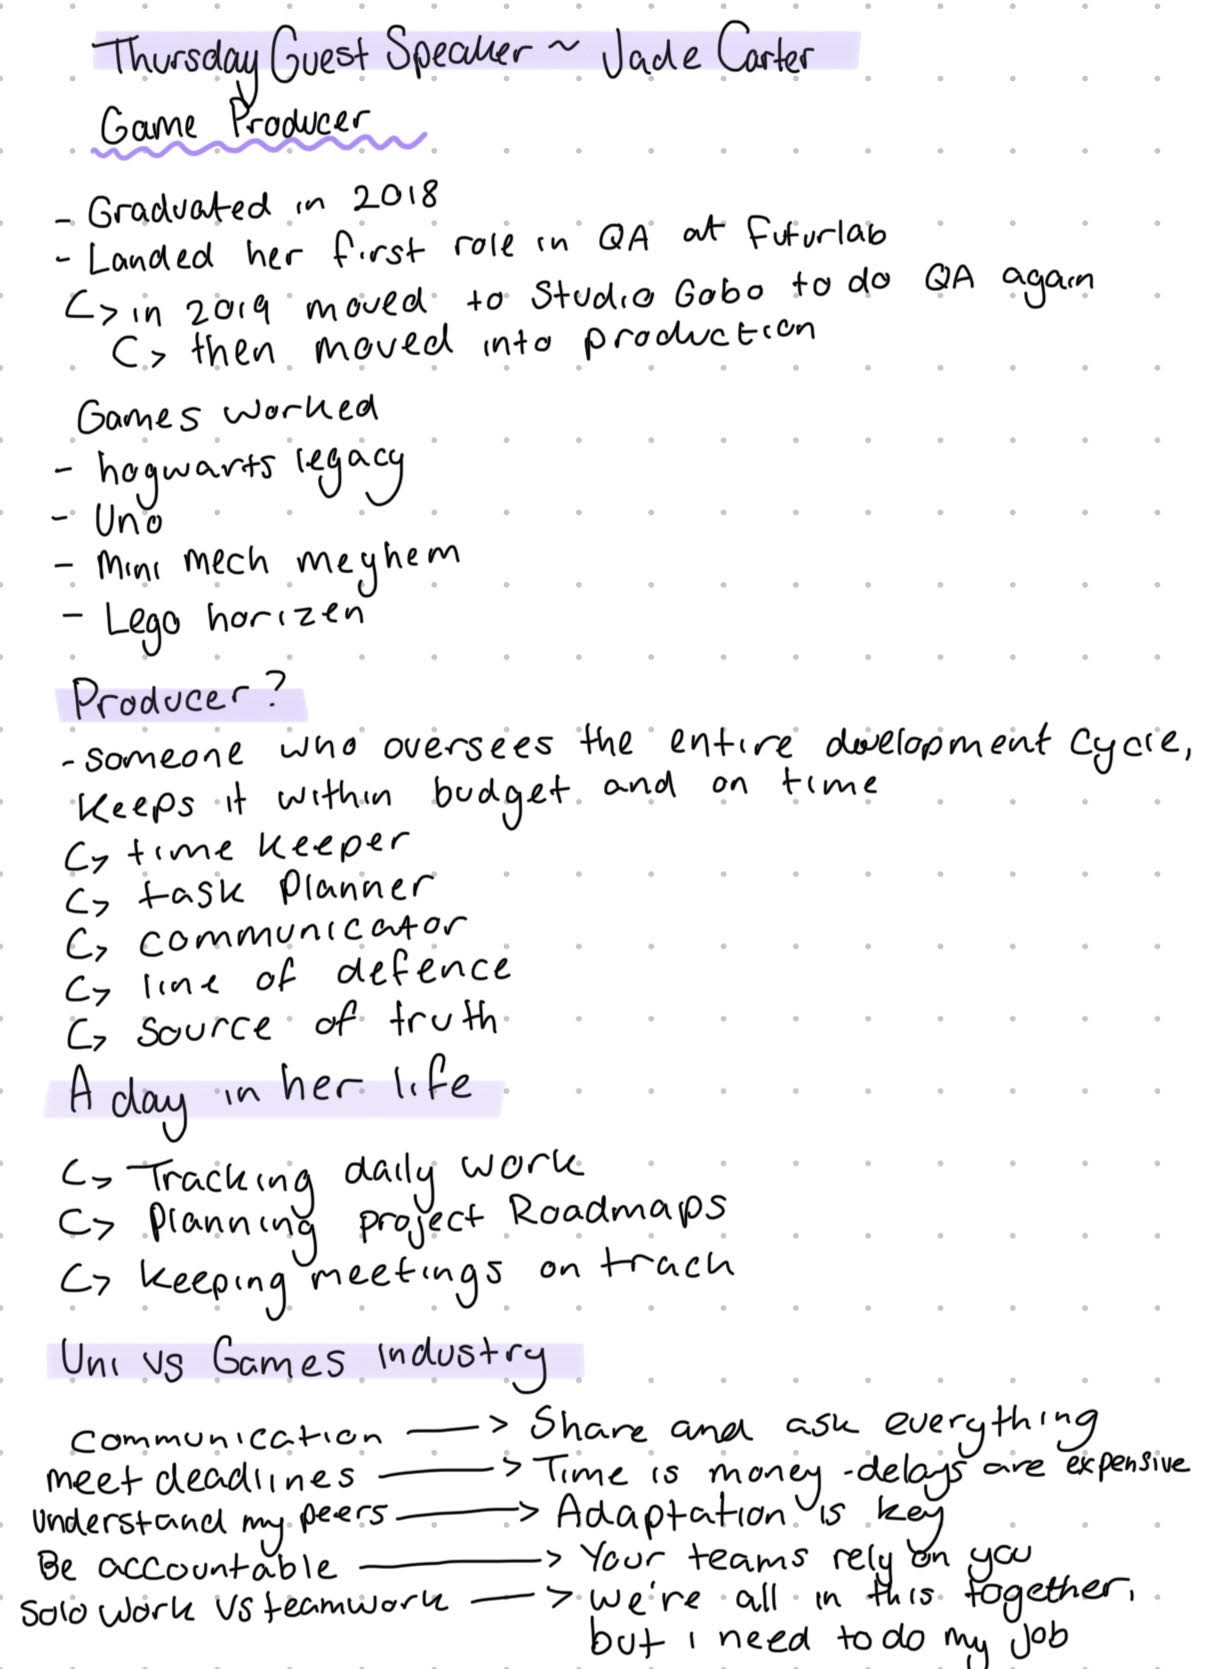 Thursday Guest Speaker ~ Jade Carter
Game Producer
- Graduated in 2018
- Landed her first role in QA at Futurlab
↳ in 2019 moved to Studio Gobo to do QA again
↳ then moved into production
Games worked
- hogwarts legacy
- Uno
- Mini Mech meyhem
- Lego horizen
Producer?
- someone who oversees the entire development cycle,
keeps it within budget and on time
↳ time keeper
↳ task planner
↳ communicator
↳ line of defence
↳ source of truth
A day in her life
↳ Tracking daily work
↳ planning project Roadmaps
↳ keeping meetings on track
Uni vs Games industry
communication → Share and ask everything
meet deadlines → Time is money - delays are expensive
understand my peers → Adaptation is key
Be accountable → Your teams rely on you
solo work vs teamwork → we're all in this together,
but i need to do my job